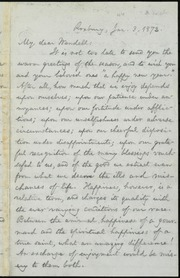 Roxbury, Jan. 8, 1872.
My dear Wendell:
It is not too late to send you the
warm greetings of the season, and to wish you
and your beloved one "a happy new year."
After all, how much that we enjoy depends
upon ourselves, or our patience under an-
noyances; upon our fortitude under afflic-
tions; upon our unselfishness under adverse
circumstances; upon our cheerful disposi-
tion under disappointments; upon our grate-
ful recognition of the many blessings vouch-
safed to us, and of the good we extract even
from what we deem the ills and mis-
chances of life. Happiness, however, is a
relative term, and changes its quality with
the ever varying conditions of our race.
Between the animal happiness of a gour-
mand and the spiritual happiness of a
true saint, what an amazing difference!
An exchange of enjoyment would be mis-
ery to them both.